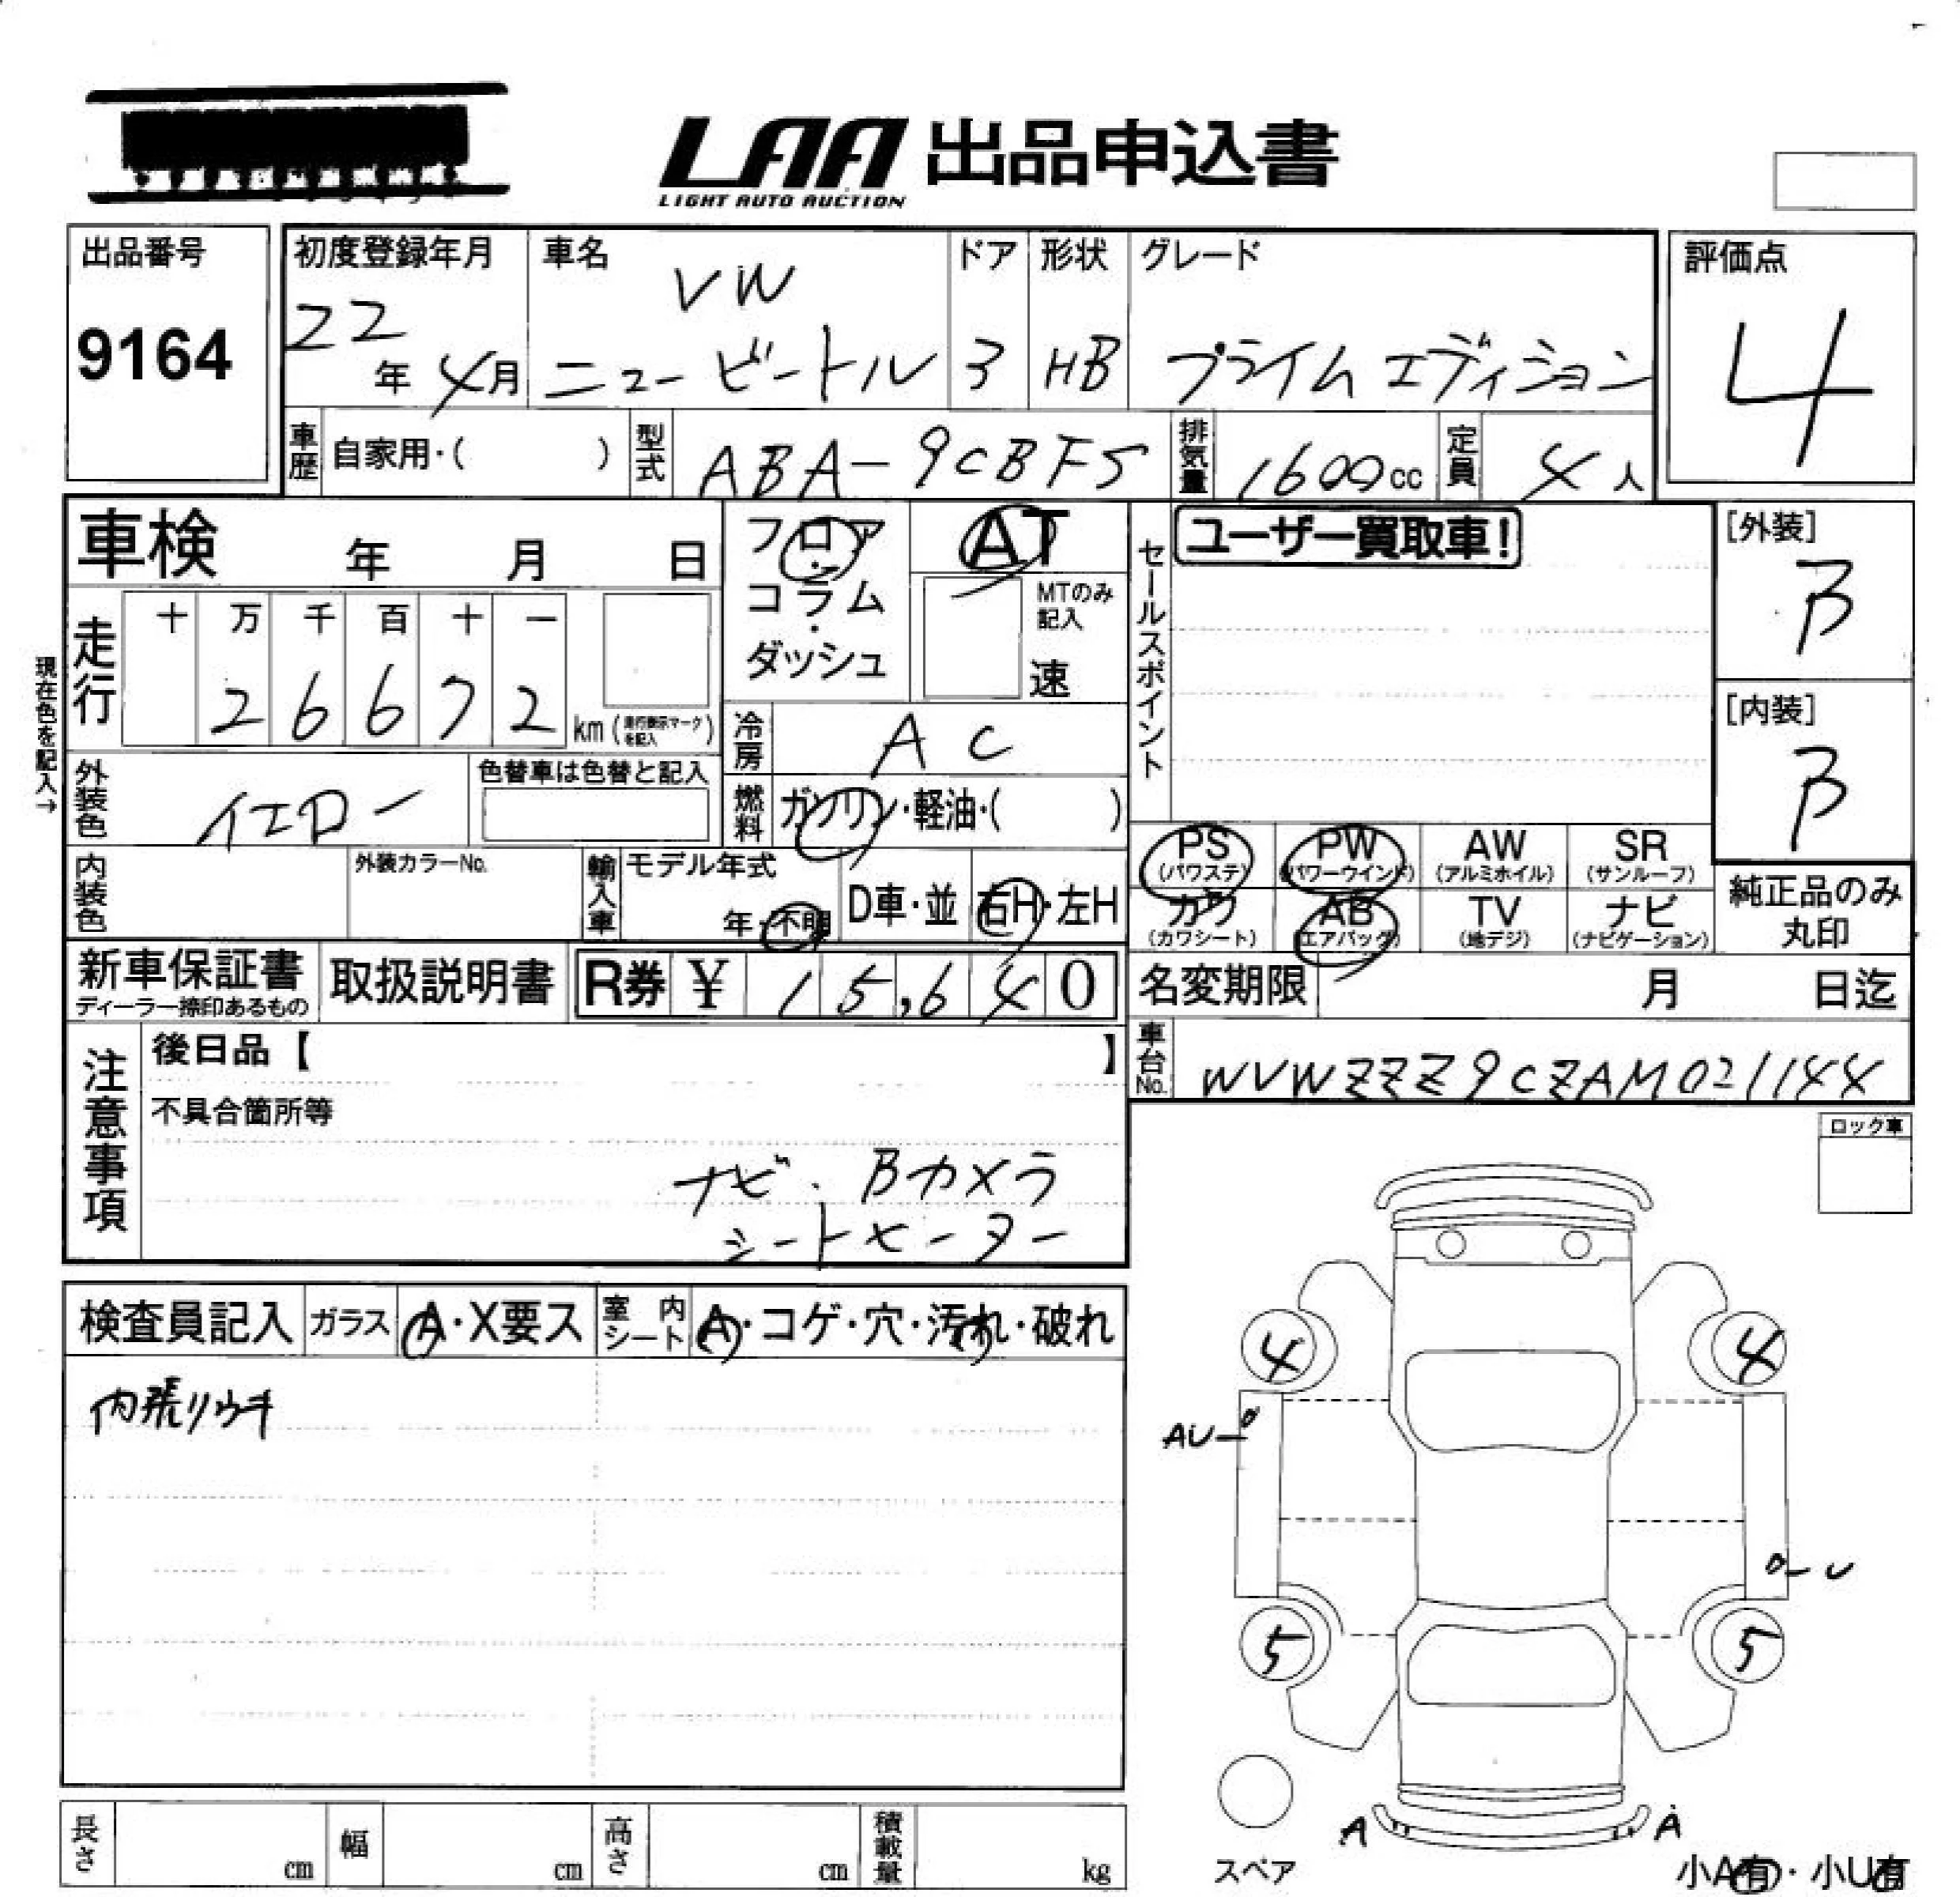 LAA 出品申込書
LIGHT AUTO AUCTION
出品番号
9164
初度登録年月
22年 4月
車名
VW
ニュービートル
ドア
3
形状
HB
グレード
プライム エディション
評価点
4
車歴 自家用・( )
型式 ABA-9CBFS
排気量 1600cc
定員 4人
車検 年 月 日
フロア・コラム・ダッシュ
AT
MTのみ記入
速
セールスポイント
ユーザー買取車!
[外装]
B
[内装]
B
現在色を記入→
走行
十 万 千 百 十 一
2 6 6 7 2 km(走行表示マークを記入)
冷房 AC
外装色 イエロー
色替車は色替と記入
燃料 ガソリン・軽油・( )
内装色
外装カラーNo.
輸入車
モデル年式
年・不明
D車・並
右H・左H
PS (パワステ)
PW (パワーウインド)
AW (アルミホイル)
SR (サンルーフ)
カワ (カワシート)
AB (エアバッグ)
TV (地デジ)
ナビ (ナビゲーション)
純正品のみ丸印
新車保証書
ディーラー捺印あるもの
取扱説明書
R券 ¥ 15,640
名変期限 月 日迄
車台No. WVWZZZ9CZAM021144
注意事項
後日品【 】
不具合箇所等
ナビ・Bカメラ
シートヒーター
ロック車
検査員記入
ガラス A・X要ス
室内シート A・コゲ・穴・汚れ・破れ
内張りウキ
4 4
AU
U
5 5
A A
スペア
小A有・小U有
長さ cm
幅 cm
高さ cm
積載量 kg